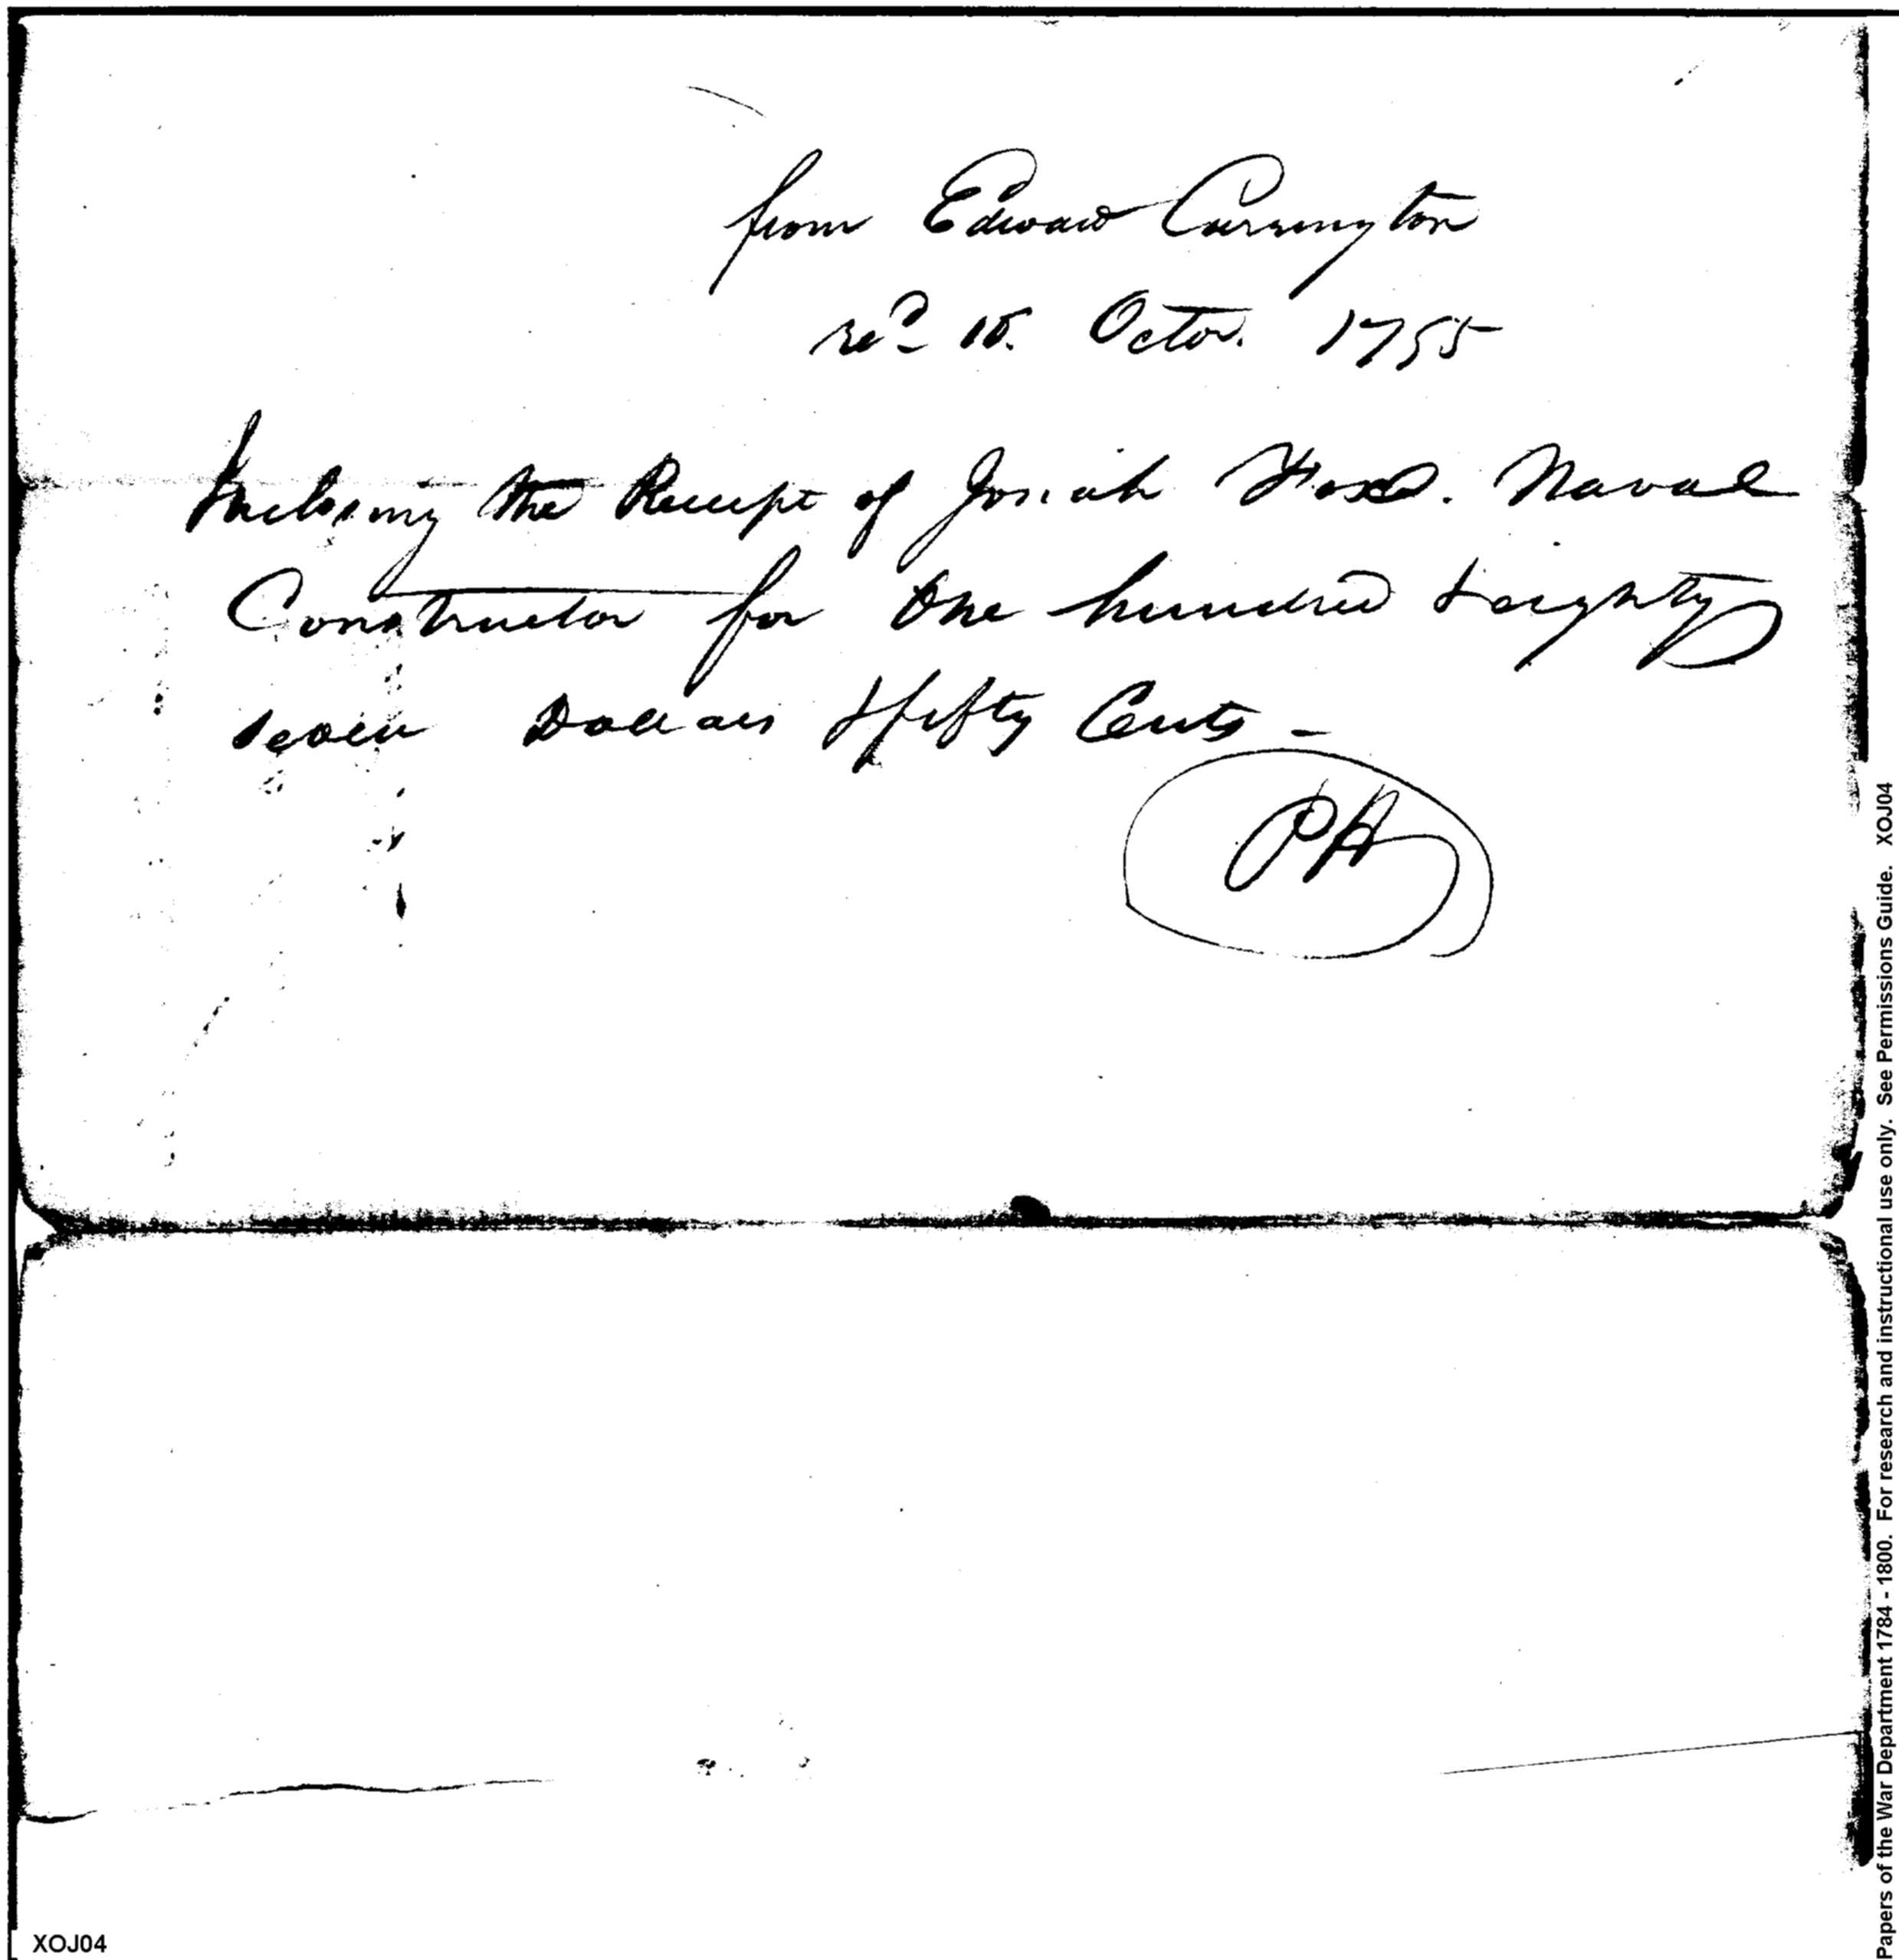 from Edward Carrington
recd 15. Octor. 1795
Inclosing the Receipt of Josiah Fox. Naval
Constructor for One hundred & eighty
seven Dollars & fifty Cents -
PH
XOJ04
Papers of the War Department 1784 - 1800. For research and instructional use only. See Permissions Guide. XOJ04